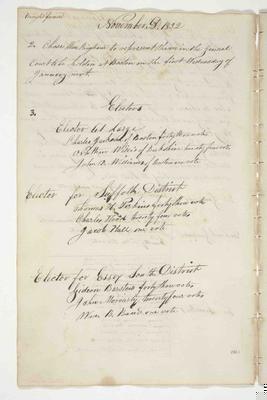 Brought forward
November 12, 1832
2. Chose Wm Bingham to represent them in the General
Court to be holden at Boston on the first Wednesday of
January next
3. Electors
Elector at Large
Charles Jackson of Boston forty three votes
Nathan Willis of Berkshire twenty four votes
John D. Williams of Boston one vote
Elector for Suffolk District
Thomas H. Perkins forty three votes
Charles Hood twenty four votes
Jacob Hall one vote
Elector for Essex South District
Gideon Barstow forty three votes
John Moriarty twenty four votes
Wm B. one vote